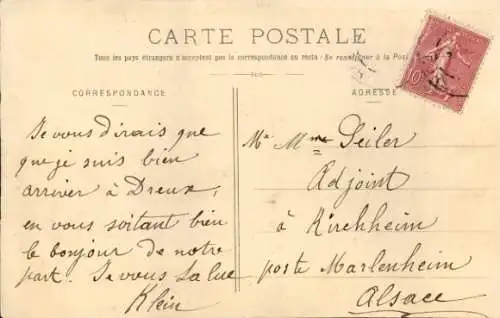 CARTE POSTALE
Tous les pays étrangers n'acceptent pas la correspondance au recto (Se renseigner à la Poste
CORRESPONDANCE
Je vous dirais que
que je suis bien
arriver à Dreux,
en vous soitant bien
le bonjour de notre
part. Je vous salue
Klein
ADRESSE
Mr Mme Seiler
Adjoint
à Kirchheim
poste Marlenheim
Alsace
10